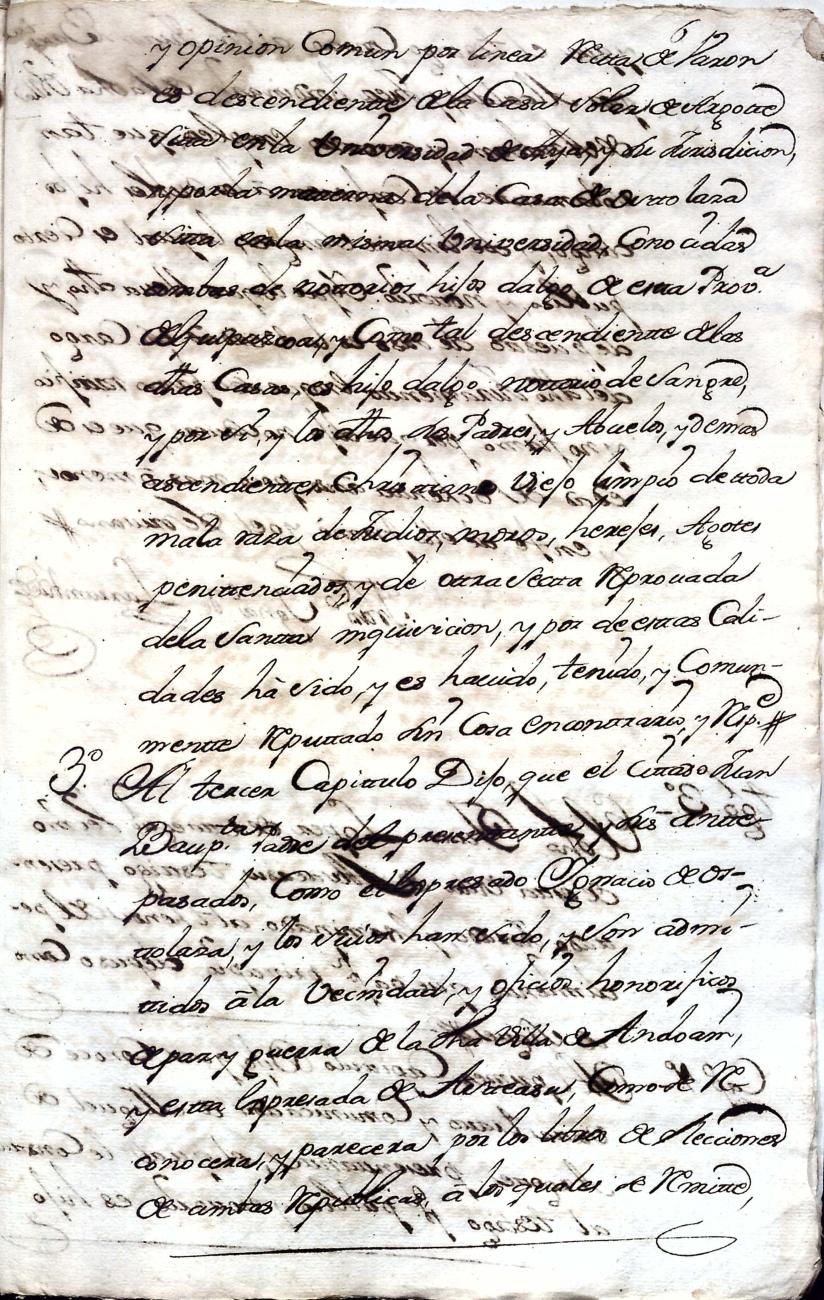 y opinion Comun por linea Recta de Varon
es descendiente de la Casa Solar de Argote
sita en la Universidad de y su Jurisdicion,
y por la materna de la Casa de ottolara
sitta en la misma Universidad, Conocidas
ambas de nottorios hijos dalgo de esta Prov.ª
de Guipuzcoa, y Como tal descendiente de las
dhas Casas, es hijo dalgo nottorio de Sangre,
y por sí, y los dhos sus Padres, y Abuelos, y demas
ascendientes Christiano Viejo limpio de toda
mala raza de Judios, moros, herejes, Agotes
penitenciados, y de ottra Secta Reprouada
de la Santta inquisicion, y por de esttas Cali-
dades hà sido, y es hauido, tenido, y Comun-
mente Reputtado sin Cosa en contrario, y Resp.e
3.º Al tercer Capittulo Dijo, que el Cittado Juan
Baup.tta Padre del presentante, y sus antte-
pasados, Como el Expresado Ignacio de ot-
tolara, y los suios han sido, y son admi-
tidos à la Vecindad, y oficios honorificos
de paz y guerra de la dha Villa de Andoain,
y estta Expresada de Asteasu, Como se Re-
conocera, y parecera por los libros de Elecciones
de ambas Republicas, à los quales se Remite,